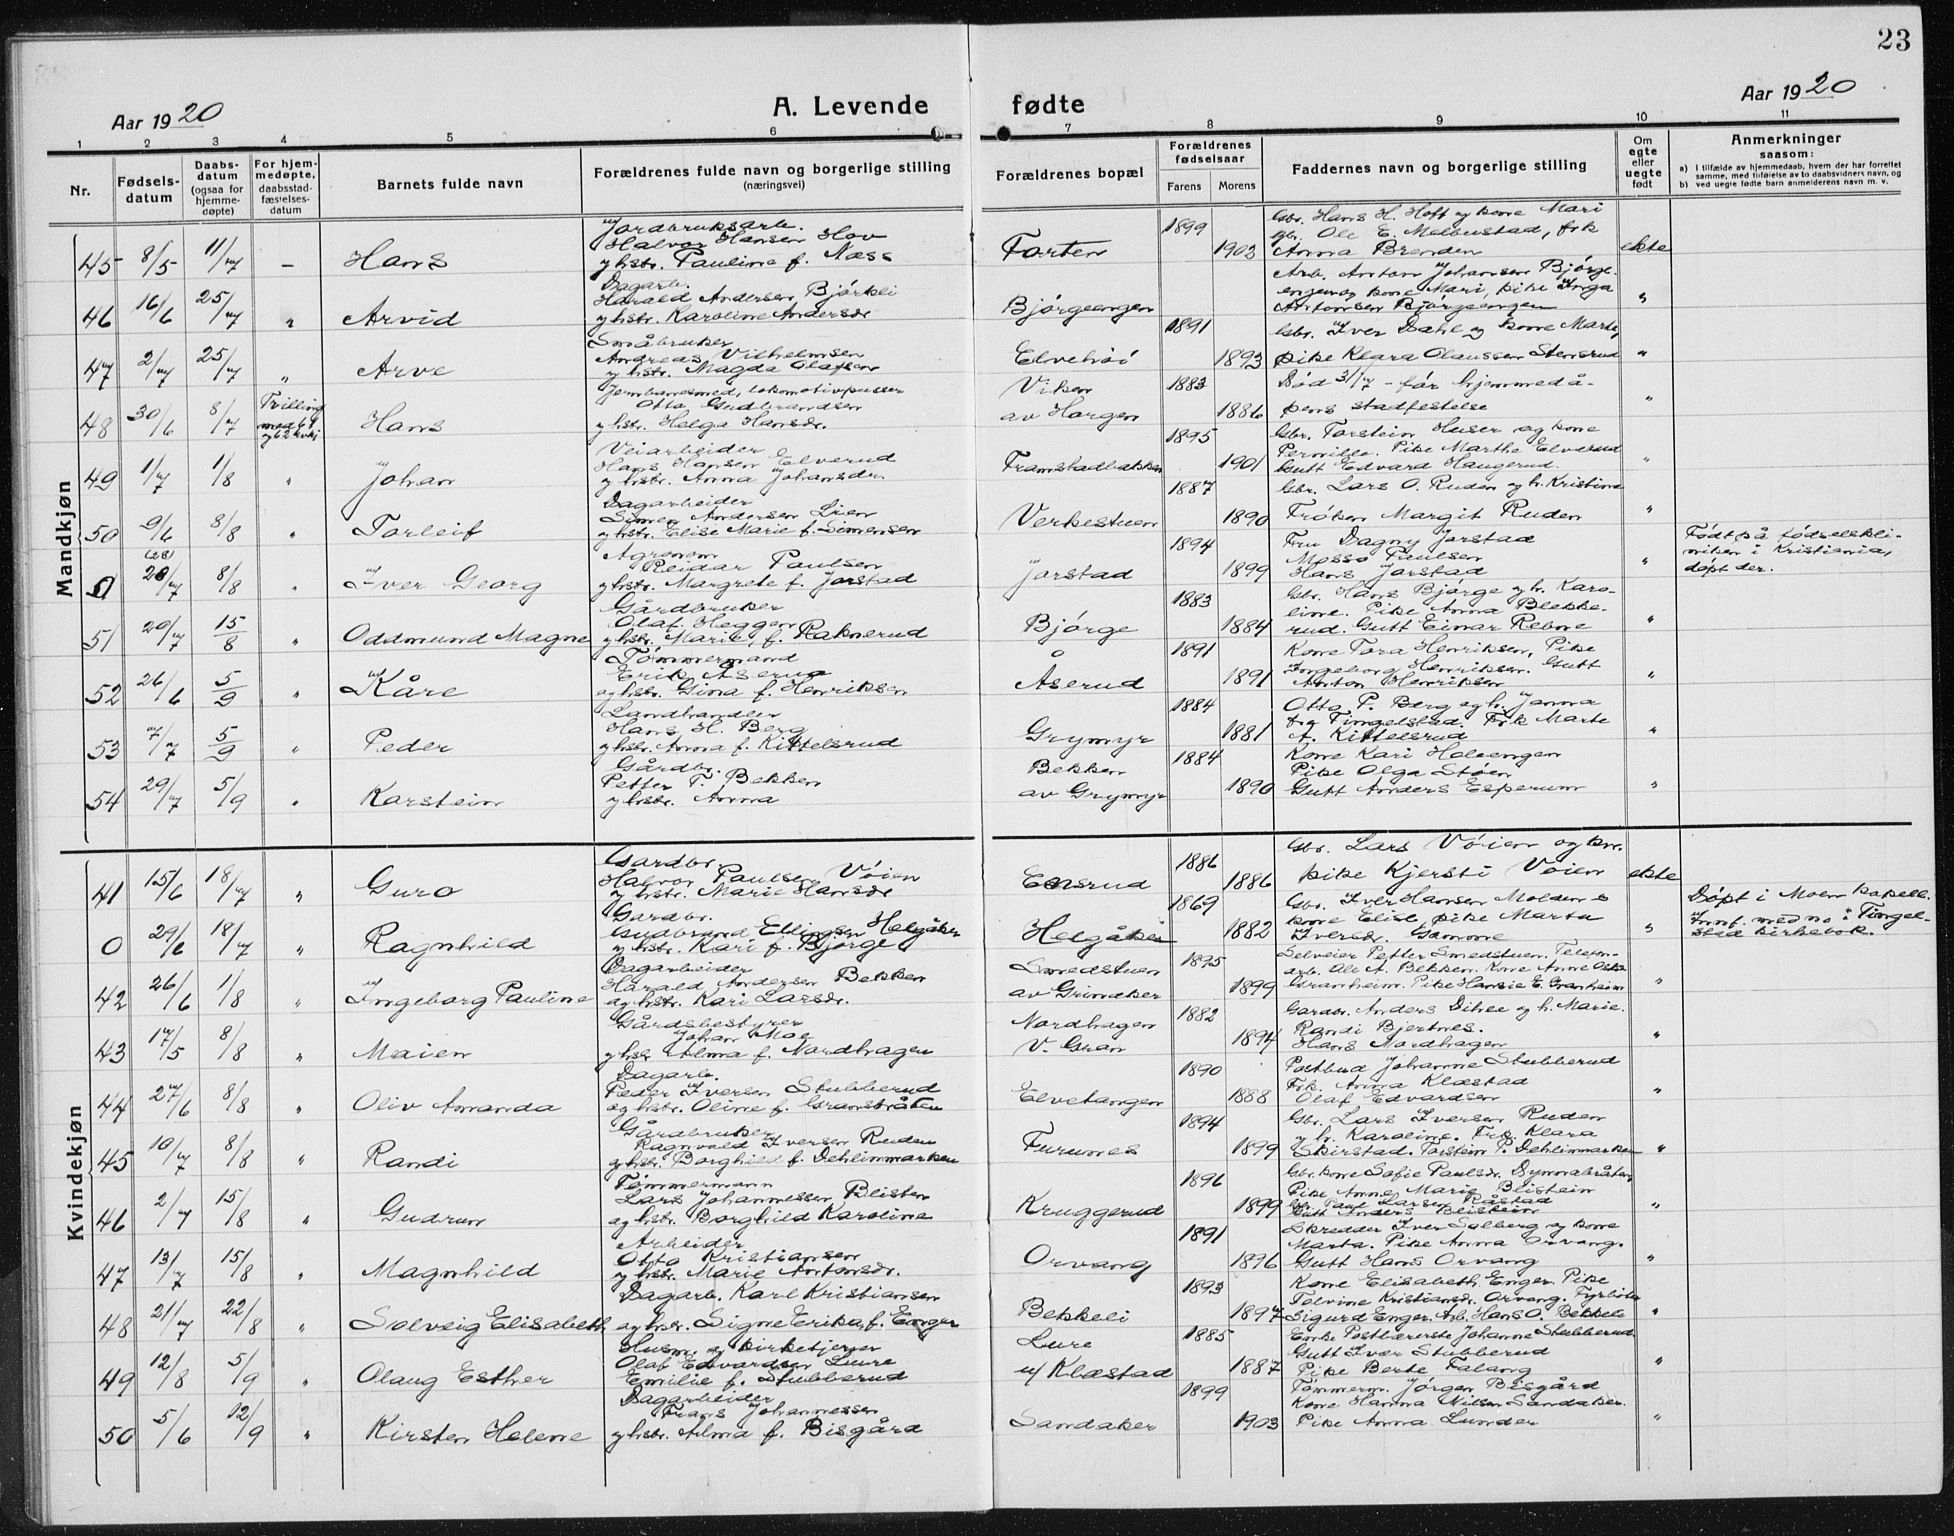 23
Aar 1920
A. Levende fødte
Aar 1920
1 2 3 4 5 6 7 8 9 10 11
Nr.
Fødsels-
datum
Daabs-
datum
(ogsaa for
hjemme-
døpte)
For hjem-
medøpte,
daabsstad-
fæstelses-
datum
Barnets fulde navn
Forældrenes fulde navn og borgerlige stilling
(næringsvei)
Forældrenes bopæl
Forældrenes
fødselsaar
Farens Morens
Faddernes navn og borgerlige stilling
Om
egte
eller
uegte
født
Anmerkninger
saasom:
a) i tilfælde av hjemmedaab, hvem der har forrettet
samme, med tilføielse av to daabsvidners navn, og
b) ved uegte fødte barn anmelderens navn m. v.
Mandkjøn
45 8/5 11/7 – Hans
Jordbruksarb.
Halvor Hansen Hov
og hstr. Pauline f. Næss
Forten 1899 1903
Gbr. Hans H. Hoft og kone Mari
gbr. Ole E. Melbustad, frk
Anna Brenden
ekte
46 16/6 25/7 " Arvid
Dagarb.
Harald Andersen Bjørkli
og hstr. Karoline Andersdr
Bjørgeengen
Arb. Anton Johansen Bjørge-
engen og kone Mari, pike Inga
Antonsen Bjørgeengen
"
47 2/7 25/7 " Arve
Småbruker
Andreas Vilhelmsen
og hstr. Magda Olafsen
Elvehøi 1891 1893
Gbr. Iver Dahl og kone Marte,
pike Klara Olaussen Stensrud
"
48 30/6 8/7 Tvilling
Hans
Jernbanesmed, lokomotivpusser
Otto Gudbrandsen
og hstr. Helga Hansdr.
Viken
av Horgen 1883 1886
Død 31/7 – før hjemmedå-
pens stadfestelse
"
49 1/7 1/8 " Johan
Veiarbeider
Hans Hansen Elverud
og hstr. Anna Johansdr.
Framstadbakken 1895 1901
Gbr. Torstein Huser og kone
Pernille. Pike Marthe Elverud
Gutt Edvard Haugerud.
"
50 9/6 8/8 " Torleif
Dagarbeider
Simen Andersen Lien
og hstr. Elise Marie f. Simensen
Verkestuen 1887 1890
Gbr. Lars O. Ruden og h. Kristine
Frøken Margit Ruden
"
(28)
0 28/7 8/8 " Iver Georg
Agronom
Reidar Paulsen
og hstr. Margrete f. Jorstad
Jorstad 1894 1899
Fru Dagny Jorstad
Paulsen
Hans Jorstad
"
Født på fødselskli-
niken i Kristiania,
døpt der.
51 20/7 15/8 " Oddmund Magne
Gårdbruker
Olaf Heggen
og hstr. Marie f. Raknerud
Bjørge 1883 1884
Gbr. Hans Bjørge og h. Karo-
line. Pike Anna Blekke-
rud. Gutt Einar Rekne
"
52 26/6 5/9 " Kåre
Tømmermand
Erik Åserud
og hstr. Gina f. Henriksen
Åserud 1891 1891
Kone Tora Henriksen, Pike
Ingeborg Henriksen. Gutt
Anton Henriksen
"
53 7/7 5/9 " Peder
Landhandler
Hans H. Berg
og hstr. Anna f. Kittelsrud
Grymyr 1884 1881
Otto P. Berg og h. Janna
Tingelstad. Frk Marte
A. Kittelsrud
"
54 29/7 5/9 " Karstein
Gårdbr.
Petter T. Bekken
og hstr. Anna
Bekken
av Grymyr 1884 1890
Kone Kari Helvengen
Pike Olga Støen
Gutt Anders Esperum
"
Kvindekjøn
41 15/6 18/7 " Guro
Gardbr.
Halvor Paulsen Vøien
og hstr. Marie Hansdr
Ensrud 1886 1886
Gbr. Lars Vøien og kone.
pike Kjersti Vøien
ekte
0 29/6 18/7 " Ragnhild
Gardbr.
Gudbrand Ellingsen Helgåker
og hstr. Kari f. Bjørge
Helgåker 1869 1882
Gbr. Iver Hansen Molden &
kone Elise, pike Marta
Iversdr.
"
Døpt i Moen kapell.
Innf. med no i Tingel-
stad kirkebok.
42 26/6 1/8 " Ingeborg Pauline
Dagarbeider
Harald Andersen Bekken
og hstr. Kari Larsdr.
Smedstuen
av Grinaker 1895 1899
Selveier Petter Smedstuen. Telefon-
arb. Ole A. Bekken. Kone Anne
Granheim. Pike Hansie E. Granheim
"
43 17/5 8/8 " Maien
Gårdsbestyrer
Johan Moe
og hstr Alma f. Nordhagen
Nordhagen
V. Gran 1882 1894
Gardbr. Anders Dihle og h. Marie.
Randi Bjertnes.
Hans Nordhagen
"
44 27/6 8/8 " Oliv Amanda
Dagarb.
Peder Iversen Stubberud
og hstr. Oline f. Gransbråten
Elvetangen 1890 1888
Postbud Johanne Stubberud
Frk. Anna Klæstad
Olaf Edvardsen
"
45 10/7 8/8 " Randi
Gårdbruker
Ragnvald Iversen Ruden
og hstr. Borghild f. Dehlinmarken
Furunes 1894 1899
Gbr. Lars Iversen Ruden
og h. Karoline. Frk. Klara
Skirstad. Torstein P. Dehlinmarken
"
46 2/7 15/8 " Gudrun
Tømmermann
Lars Johannessen Blisten
og hstr. Borghild Karoline
Kruggerud 1896 1899
Gbr. kone Sofie Paulsdr. Dynnabråten
Pike Anne Marie Blistein
Gbr. Paul Larsen Råstad
Gutt Anders Blistein
"
47 13/7 15/8 " Magnhild
Arbeider
Otto Kristiansen
og hstr. Marie Antonsdr.
Orvang 1891 1896
Skredder Iver Solberg og kone
Marta. Pike Anna Orvang.
Gutt Hans Orvang
"
48 21/7 22/8 " Solveig Elisabeth
Dagarb. Karl Kristiansen
og hstr. Signe Erika f. Enger
Bekkeli 1893 1897
Kone Elisabeth Enger. Pike
Tolvine Kristiansdr. Orvang. Fyrbøter
Sigurd Enger. Arb. Hans O. Bekkeli
"
49 12/8 5/9 " Olaug Esther
Husm. og kirketjener
Olaf Edvardsen Lure
Emilie f. Stubberud
Lure
u/ Klæstad 1885 1887
Enke Postbærerske Johanne Stubberud.
Gutt Ivar Stubberud
Pike Berte Falang
"
50 5/6 12/9 " Kirsten Helene
Dagarbeider
Frans Johannessen
og hstr. Alma f. Bisgård
Sandaker 1899 1903
Tømmerm. Jørgen Bisgård
Kone Hanna Nilsen Sandaker.
Pike Anna Lunder
"